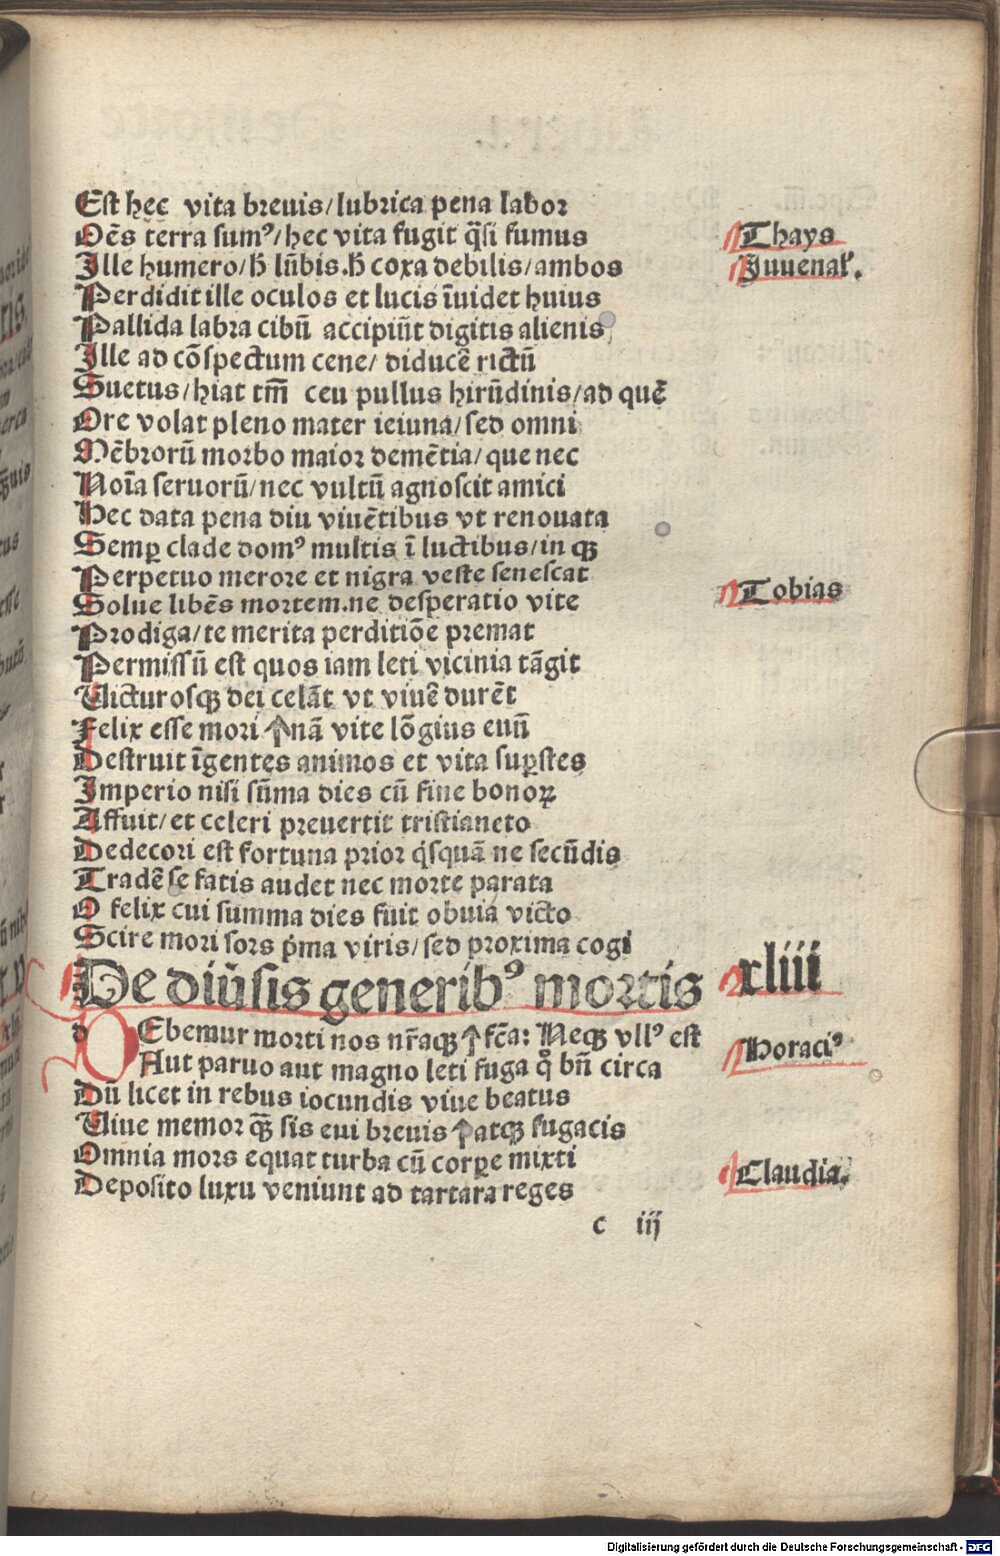 Est hec vita breuis/lubrica pena labor
Oēs terra sumꝰ/hec vita fugit q̄si fumus
Thays
Ille humero/ħ lūbis.ħ coxa debilis/ambos
Juuenal'.
Perdidit ille oculos et lucis īuidet huius
Pallida labra cibū accipiūt digitis alienis
Ille ad cōspectum cene/ diducē rictū
Suetus/hiat tm̄ ceu pullus hirūdinis/ad quē
Ore volat pleno mater ieiuna/sed omni
Mēbrorū morbo maior demētia/que nec
Noīa seruorū/nec vultū agnoscit amici
Hec data pena diu viuētibus vt renouata
Semꝑ clade domꝰ multis ī luctibus/in qꝫ
Perpetuo merore et nigra veste senescat
Solue libēs mortem.ne desperatio vite
Tobias
Prodiga/te merita perditiōe premat
Permissū est quos iam leti vicinia tāgit
Victurosqꝫ dei celāt vt viuē durēt
Felix esse mori ↑nā vite lōgius euū
Destruit īgentes animos et vita suꝑstes
Imperio nisi sūma dies cū fine bonoꝝ
Affuit/et celeri preuertit tristianeto
Dedecori est fortuna prior q̇squā ne secūdis
Tradē se fatis audet nec morte parata
O felix cui summa dies fuit obuia victo
Scire mori sors p̄ma viris/sed proxima cogi
De diūsis generibꝰ mortis
xliii
d Ebemur morti nos nr̄aqꝫ↑fc̄a: Neqꝫ vllꝰ est
Aut paruo aut magno leti fuga q̊ bn̄ circa
Horaciꝰ
Dū licet in rebus iocundis viue beatus
Viue memor qꝫ̄ sis eui breuis↑atqꝫ fugacis
Omnia mors equat turba cū corꝑe mixti
Claudia.
Deposito luxu veniunt ad tartara reges
c iij
Digitalisierung gefördert durch die Deutsche Forschungsgemeinschaft - DFG